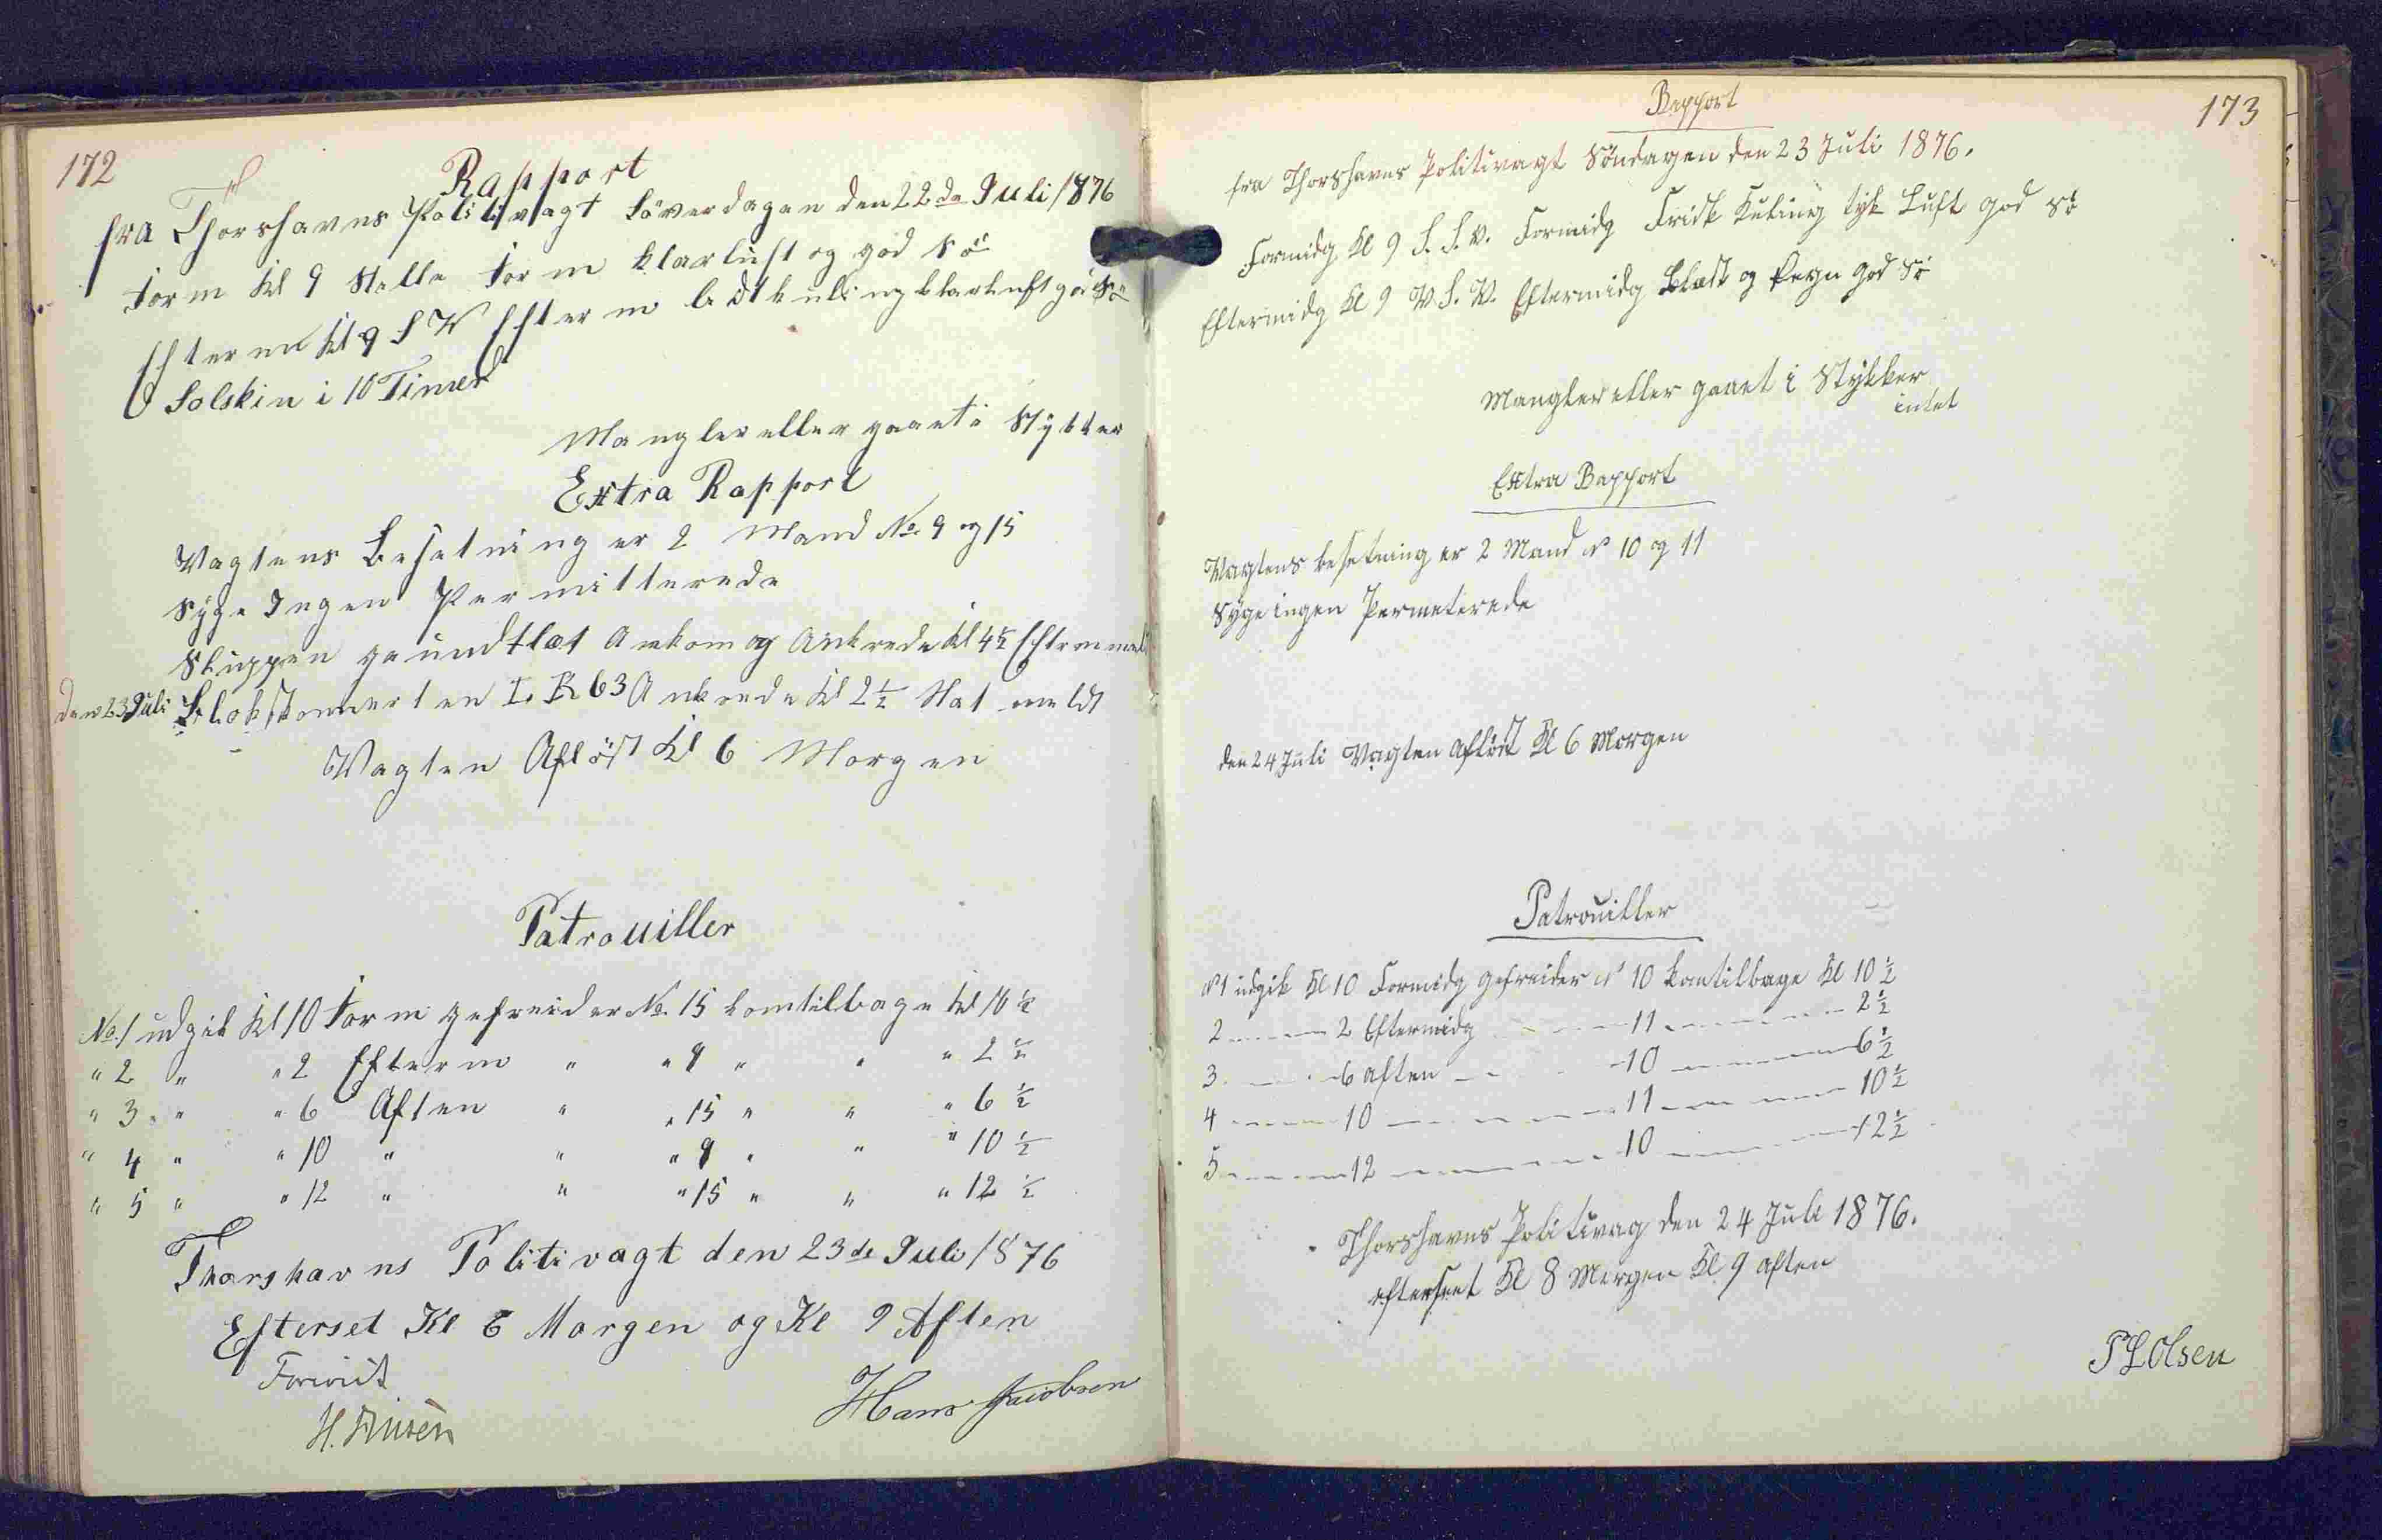 172
Rapport
fra Thorshavns Politivagt Löverdagen den 22de Juli 1876
Form Kl 9 Stelle Form klarluft og god Sö
Efterm Kl 9 S V Efterm ledt kuling klarluft go Sö
Solskin i 10 Timer
Mangler eller gaaet i Stykker
Extra Rapport
Vagtens Besetning er 2 Mand No 9 og 15
Syge Ingen Permitterede
Skuppen Ankom og Ankrede Kl 4½
den 23 Juli Ankrede Kl 2½ Nat
Vagten Aflöst Kl 6 Morgen
Patrouiller
No 1 udgik Kl 10 Form gefreider No. 15 komtilbage Kl 10½
" 2 " " 2 Efterm " " 9 " " " 2½
" 3 " " 6 Aften " " 15 " " " 6½
" 4 " " 10 " " " 9 " " " 10½
" 5 " " 12 " " " 15 " " " 12½
Thorshavns Politivagt den 23de Juli 1876
Efterset Kl 8 Morgen og Kl 9 Aften
Hans Jacobsen
173
Rapport
fra Thorshavns Politivagt Söndagen den 23 Juli 1876.
Formidg Kl 9 S. S. V. Formidg Frisk Kuling tyk Luft god Sö
Eftermidg Kl 9 V. S. V. Eftermidg Blæst og Regn god Sö
Mangler eller gaaet i Stykker
intet
Extra Rapport
Vagtens besetning er 2 Mand No 10 og 11
Syge ingen Permeterede
den 24 Juli Vagten Aflöst Kl 6 Morgen
Patrouiller
No 1 udgik Kl 10 Formidg gefreider No 10 komtilbage Kl 10½
2 — 2 Eftermidg — 11 — 2½
3 — 6 aften — 10 — 6½
4 — 10 — 11 — 10½
5 — 12 — 10 — 12½
Thorshavns Politivag den 24 Juli 1876.
efterseet Kl 8 Morgen Kl 9 aften
P L Olsen